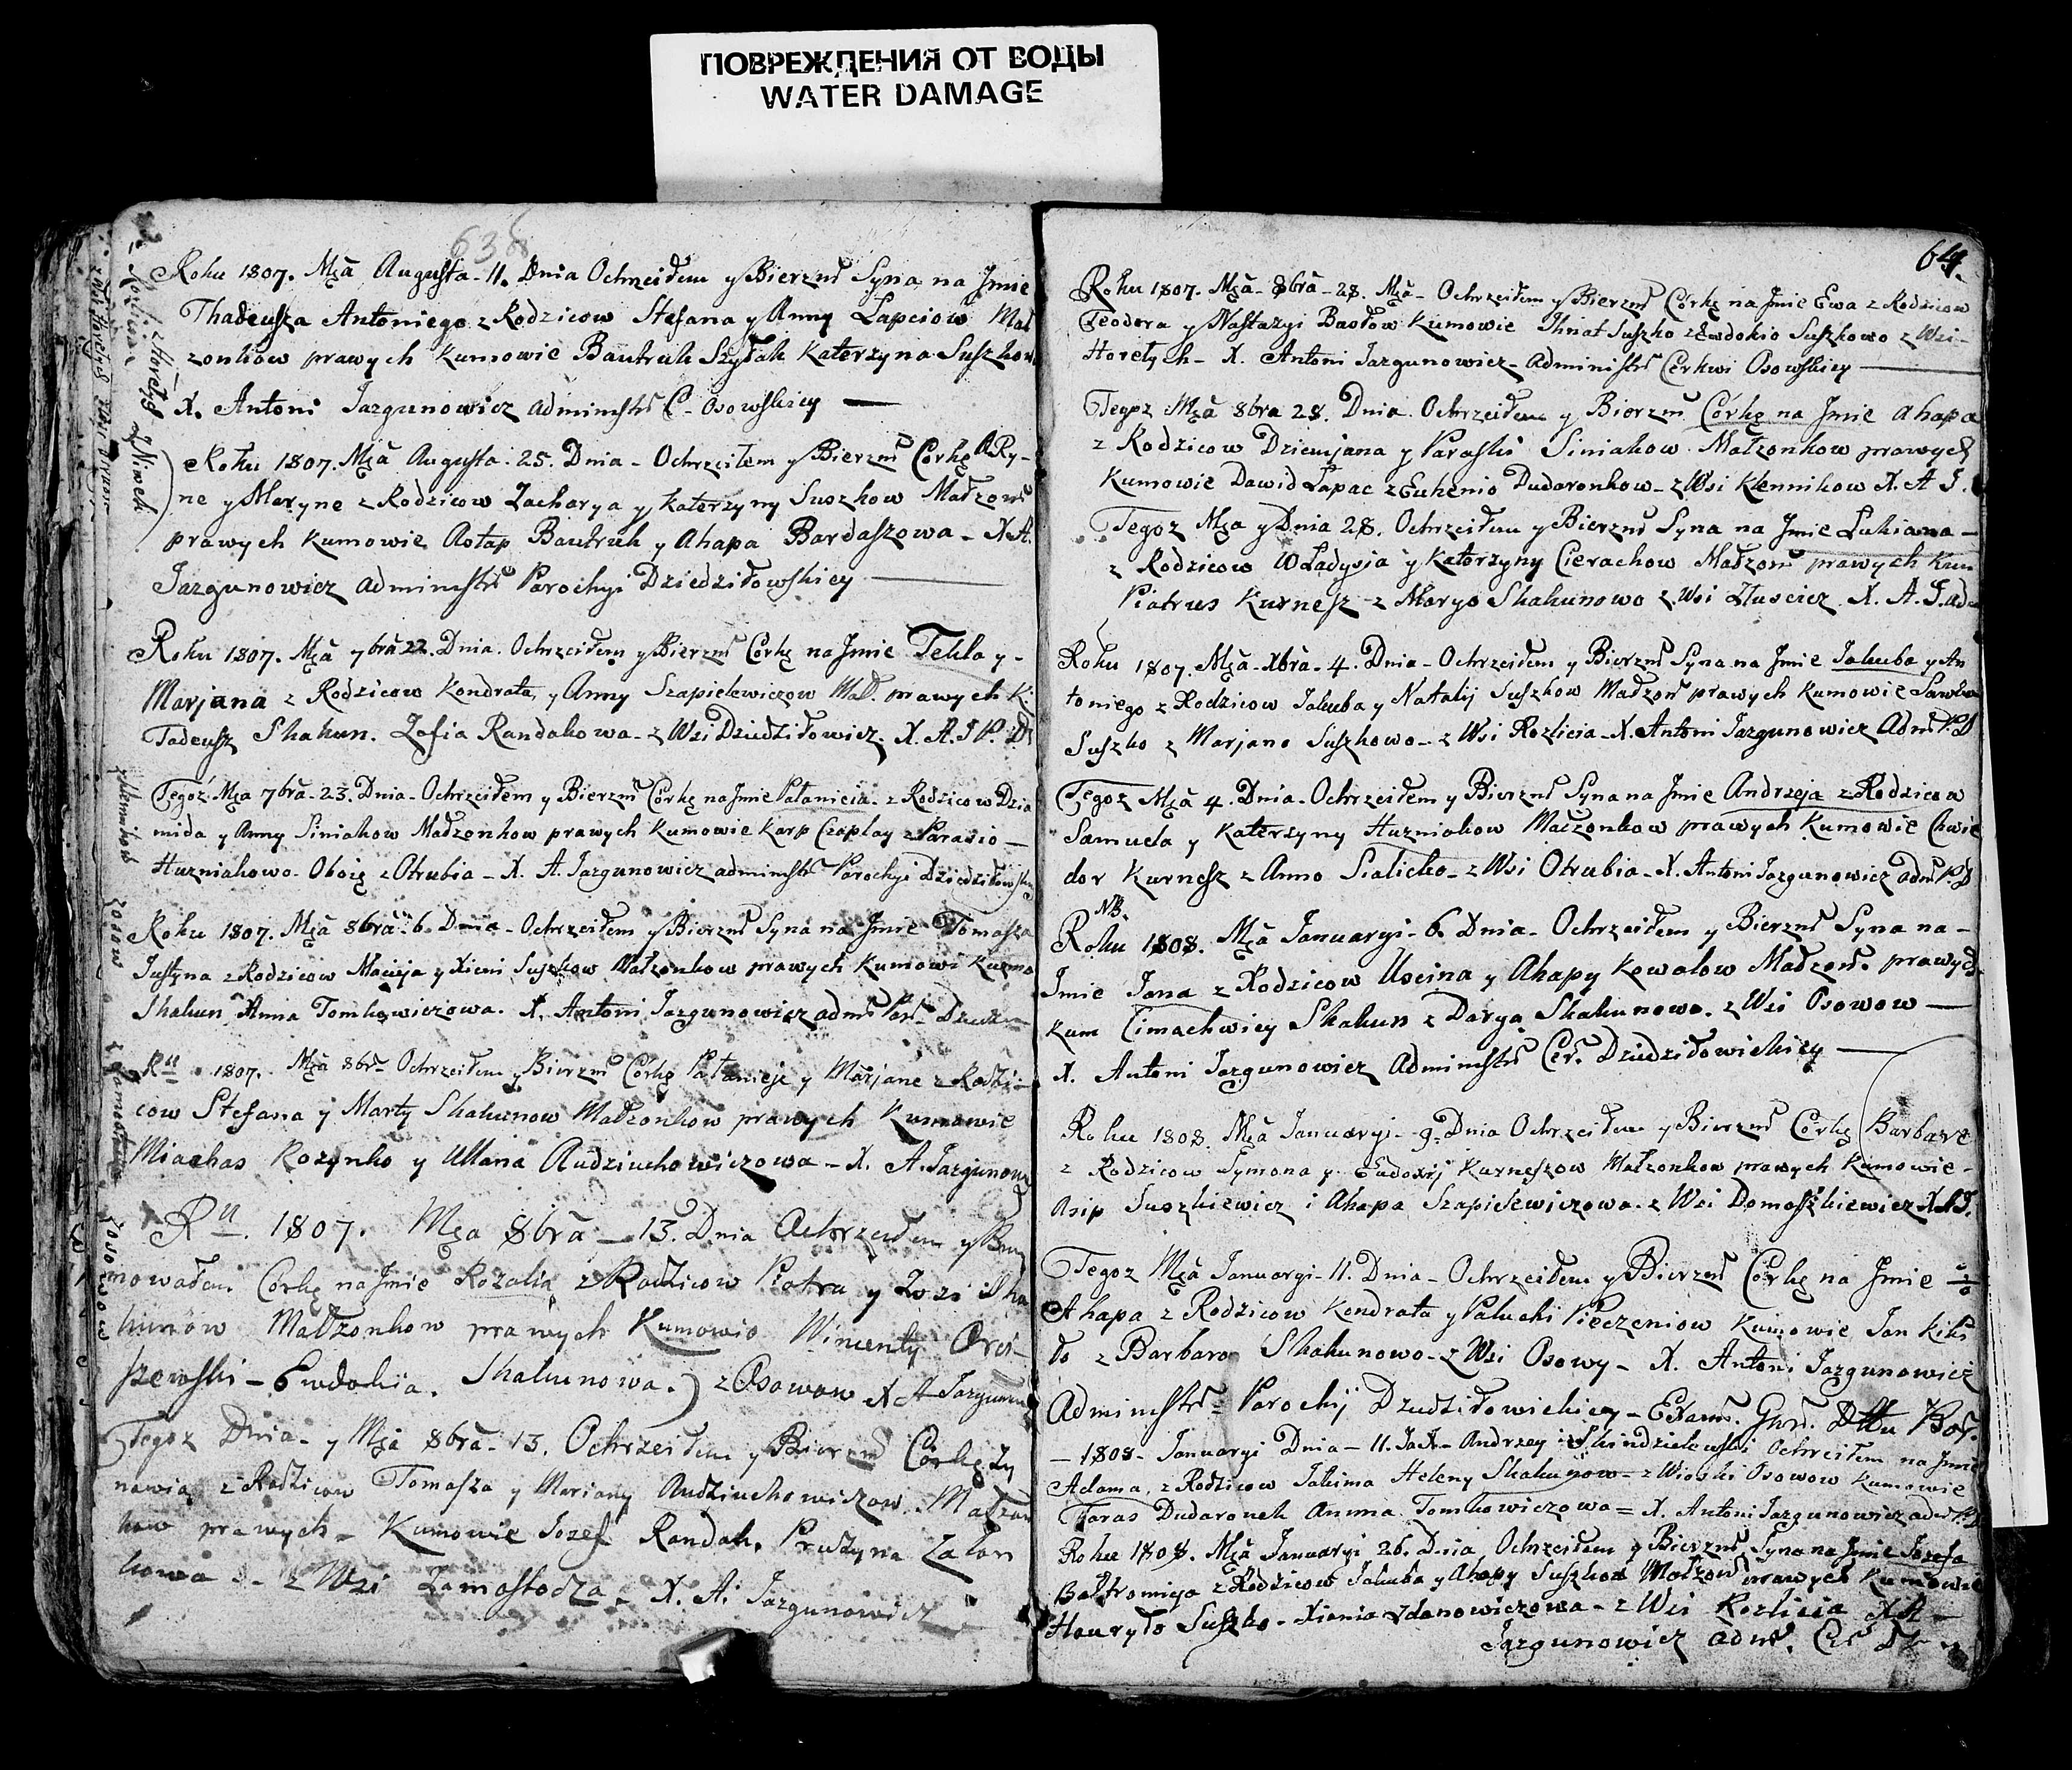 ПОВРЕЖДЕНИЯ ОТ ВОДЫ
WATER DAMAGE
638
Roku 1807. Mca Augusta 11. Dnia Ochrzciłem y Bierzm Syna na Jmie
Thadeusza Antoniego z Rodzicow Stefana y Anny Łapciow Mał
zonkow prawych Kumowie Bautruk Szyłak Katerzyna Suszkow
X. Antoni Jazgunowicz Administr C. Osowskiey
Roku 1807. Mca Augusta. 25. Dnia - Ochrzciłem y Bierzm Corkę ARy-
ne y Maryne z Rodzicow Zacharya y Katerzyny Suszkow Małzon
prawych Kumowie Astap Bautruk y Ahapa Bardaszowa - X A.
Jazgunowicz Administr Parochyi Dziedziłowskiey
Roku 1807. Mca 7bra 22. Dnia. Ochrzciłem y Bierzm Corkę na Jmie Tekla y -
Marjana z Rodzicow Kondrata, y Anny Szapielewiczow Mał. prawych K:
Tadeusz Skakun. Zofia Randakowa - z Wsi Dziedziłowicz. X. A. J P. D
Tegoz Mca 7bra - 23. Dnia - Ochrzciłem y Bierzm Corkę na Jmie Pałanieia - z Rodzicow Dzia
mida y Anny Siniakow Małzonkow prawych Kumowie Karp Czaplay z Parasio -
Huzniakowo - Oboię z Otrubia - X. A. Jazgunowicz administr Parochyi Dziedziłowskiey
Roku 1807. Mca 8bra 6. Dnia - Ochrzciłem y Bierzm Syna na Jmie Tomasza
Justyna z Rodzicow Macieja y Xieni Suszkow Małzonkow prawych Kumowi Kuzma
Skakun Anna Tomkowiczowa. X. Antoni Jazgunowicz adm Par
Ru 1807. Mca 8br Ochrzciłem y Bierzm Corkę Pałanieje y Marjane z Rodzi-
cow Stefana y Marty Skakunow Małzonkow prawych Kumowie
Miachas Kozynko y Ullana Audziuchowiczowa - X. A. Jazgunow
Ru. 1807. Mca 8bra - 13. Dnia Ochrzciłem y Bierz
mowałem Corkę na Jmie Rozalia z Rodzicow Piotra y Zozi Ska
kunow Małzonkow prawych Kumowie Wincenty
szewski - Ewdokia. Skakunowa. z Osowow X A Jazgunow
Tegoz Dnia - y Mca 8bra - 13. Ochrzciłem y Bierzm Corkę Zy
nowią z Rodzicow Tomasza y Mariany Audziuchowiczow Małzon
kow prawych - Kumowie Jozef Randak. Prużyna
kowa - z Wsi Zamostocza - X. A. Jazgunowicz
64.
Roku 1807. Mca - 8bra - 28. Mca - Ochrzciłem y Bierzm Corkę na Jmie Ewa z Rodzicow
Teodora y Nastazyi Basłow Kumowie Ihnat Suszko z Ewdokio Suszkowo z Wsi -
Horełych - X. Antoni Jazgunowicz - Administr Cerkwi Osowskiey
Tegoz Mca 8bra 28. Dnia. Ochrzciłem y Bierzm Corkę na Jmie Ahapa
z Rodzicow Dziemjana y Paraski Siniakow Małzonkow prawych
Kumowie Dawid Łapac z Euhenio Dudaronkow - z Wsi Klennikow X. A J.
Tegoz Mca y Dnia 28. Ochrzciłem y Bierzm Syna na Jmie Lukiana -
z Rodzicow Władysia y Katerzyny Cierachow Małzon prawych Kum
Piatrus Kurnesz - z Maryo Skakunowo z Wsi Złuscicz X. A. J. ad
Roku 1807. Mca - Xbra - 4. Dnia - Ochrzciłem y Bierzm Syna na Jmie Jakuba y An
toniego z Rodzicow Jakuba y Natalij Suszkow Małzon prawych Kumowie
Suszko z Marjano Suszkowo - z Wsi Rozlicia - X. Antoni Jazgunowicz Adm P. D
Tegoz Mca 4. Dnia - Ochrzciłem y Bierzm Syna na Jmie Andrzeja z Rodzicow
Samuela y Katerzyny Huzniakow Małzonkow prawych Kumowie Chwie
dor Kurnesz z Anno Sialicko - z Wsi Otrubia - X. Antoni Jazgunowicz adm P. D
NB.
Roku 1808. Mca Januaryi - 6 Dnia - Ochrzciłem y Bierzm Syna na -
Jmie Jana z Rodzicow Uscina y Ahapy Kowalow Małzon. prawych
Kum Cimachwiey Skakun z Darya Skakunowo. z Wsi Osowow
X. Antoni Jazgunowicz Administr Cer. Dziedziłowickiey
Roku 1808. Mca Januaryi - 9. Dnia Ochrzciłem y Bierzm Corkę Barbarę
z Rodzicow Symona y Eudoxij Kurneszow Małzonkow prawych Kumowie -
Asip Suszkiewicz i Ahapa Szapielewiczowa - z Wsi Domaszkiewicz X. A J.
Tegoz Mca Januaryi - 11. Dnia - Ochrzciłem y Bierzm Corkę na Jmie
Ahapa z Rodzicow Kondrata y Paluchi Pieczeniow Kumowie Jan Kiki
ło z Barbaro Skakunowo - z Wsi Osowy - X. Antoni Jazgunowicz
Administr - Parochij Dziedziłowickiey -
- 1808 - Januaryi Dnia - 11. Ja X. Andrzey Skindzielewski Ochrciłem na Jmie
Adama, z Rodzicow Jakima Heleny Skakunow - z Wioski Osowow Kumowie
Taras Dudaronek Anna Tomkowiczowa = X. Antoni Jazgunowicz adm P. D
Roku 1808. Mca Januaryi 26. Dnia Ochrzciłem y Bierzm Syna na Jmie Jozefa
Bałtromieja z Rodzicow Jakuba y Ahapy Suszkow Małzon prawych Kumowie
Hauryło Suszko - Xienia Zdanowiczowa - z Wsi Rozlicia X A -
Jazgunowicz adm. Cer